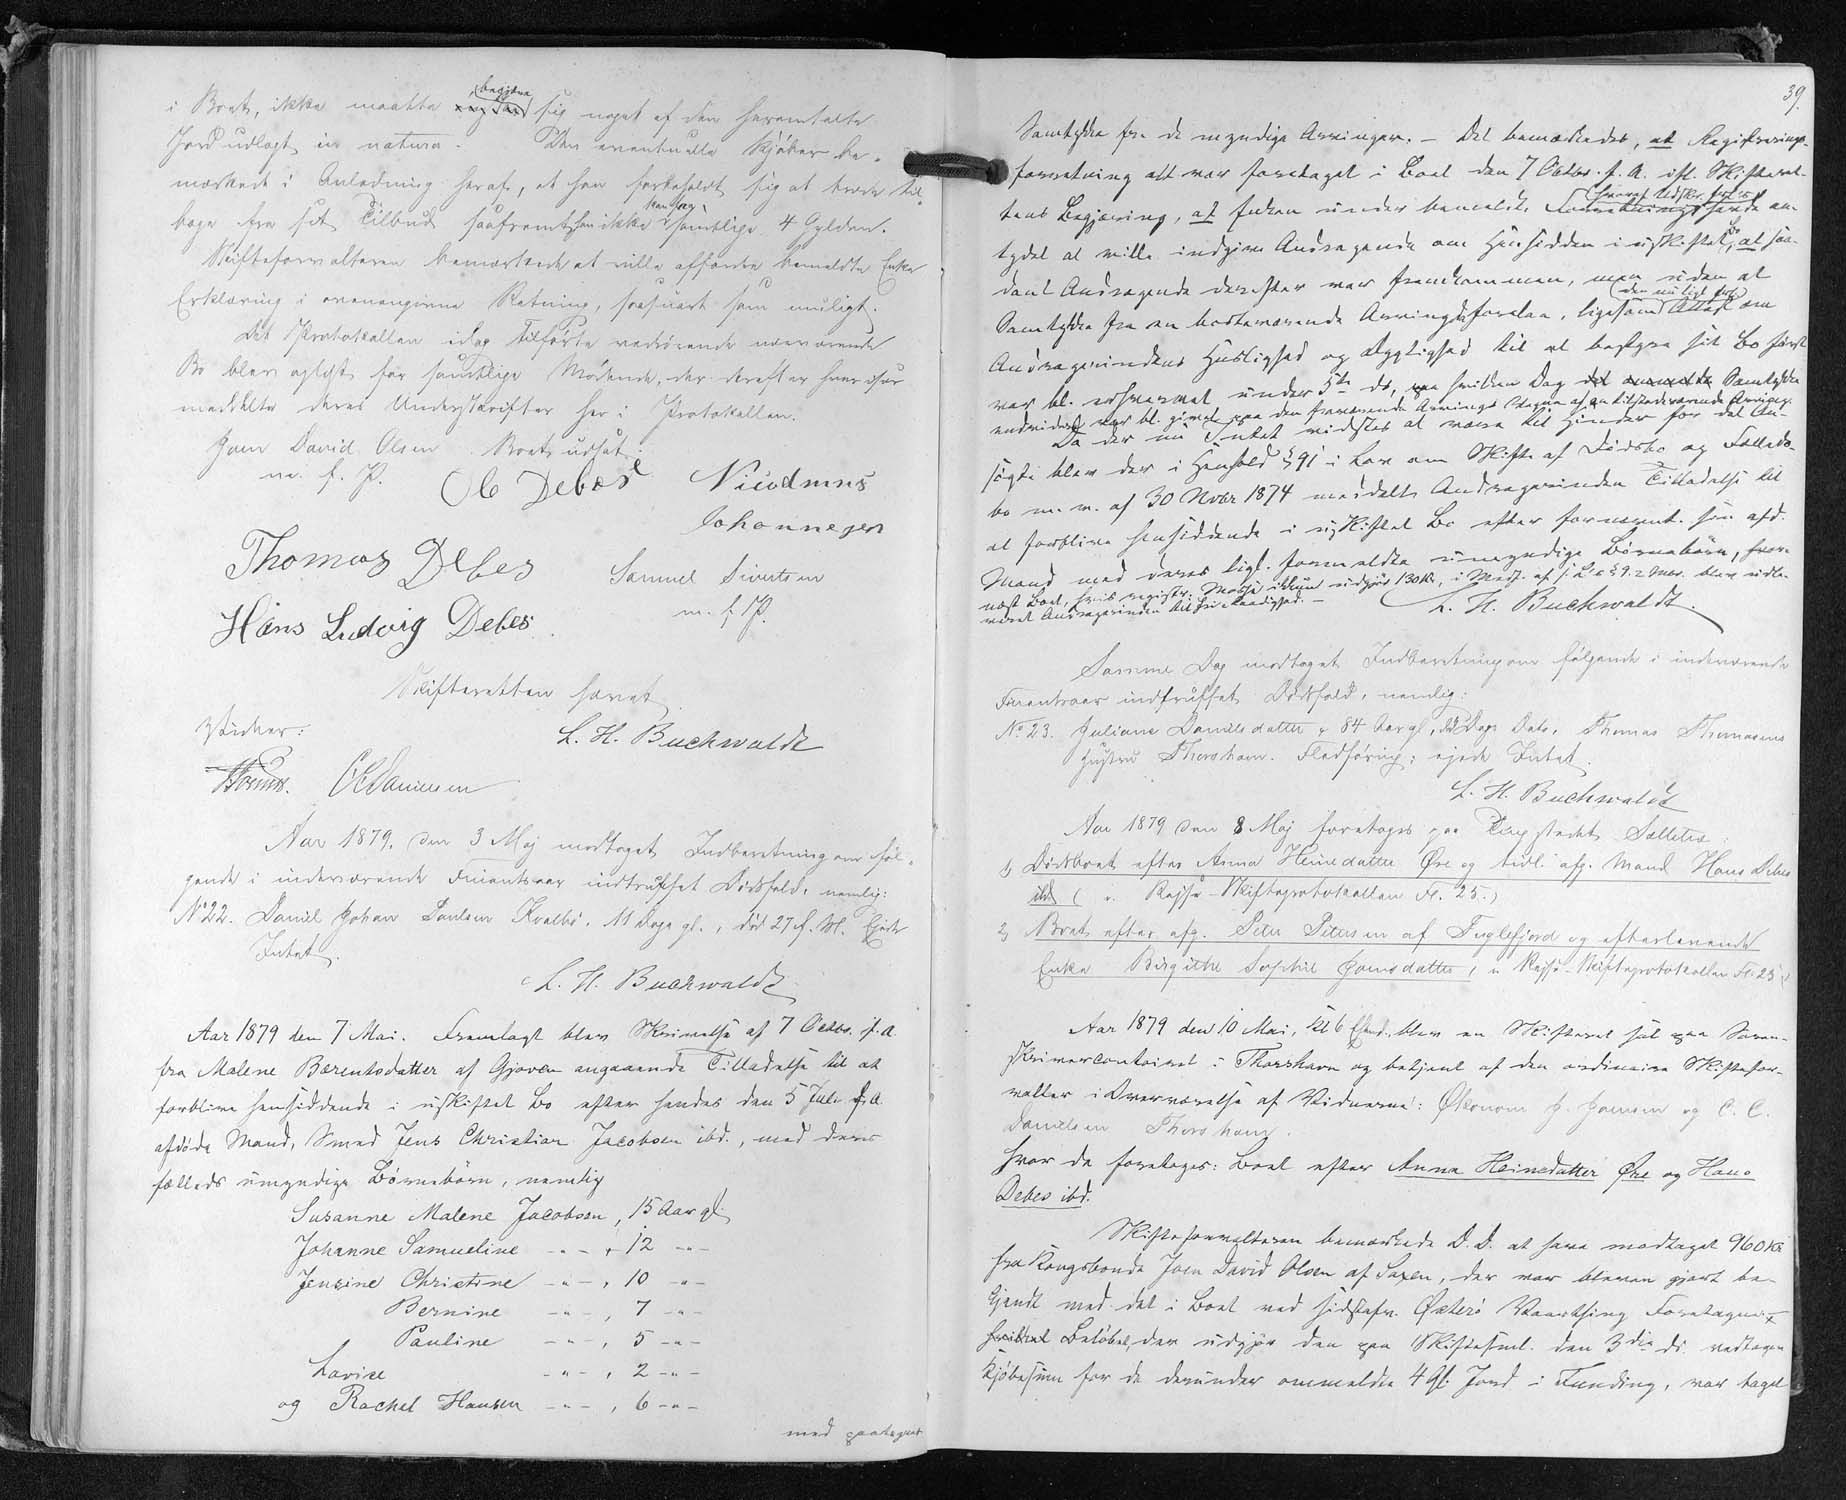 i Boet, ikke maatte begjære sig noget af den heromtalte
Jord udlagt in natura. Den eventuelle Kjøber be-
mærkede i Anledning heraf, at han forbeholdt sig at træde til-
bage fra sit Tilbud saafremt han ikke kan faa samtlige 4 Gylden.
Skifteforvalteren bemærkede at ville affordre bemeldte Enke
Erklæring i ovenangivne Retning, saasnart som muligt.
Det Protokollen idag tilførte vedrørende nærværende
Bo blev oplæst for samtlige Mødende, der derefter hver især
meddelte deres Underskrifter her i Protokollen.
Joen David Olsen. Boet udsat.
m. f. P. Ole Debes Nicodemus
Johannesen
Thomas Debes Samuel Sivertsen
Hans Ludvig Debes. m. f. P.
Skifteretten hævet
Vidner: L. H. Buchwaldt
CC Danielsen
Aar 1879, den 3 Maj modtaget Indberetning om føl-
gende i indeværende Finantsaar indtruffet Dødsfald, nemlig:
No 22. Daniel Johan Poulsen Kvalbø, 11 Dage gl., død 27 f. M. Ejede
Intet.
L. H. Buchwaldt
Aar 1879 den 7 Mai. Fremlagt blev Skrivelse af 7 Octbr. f. A.
fra Malene Bærentsdatter af Gjoven angaaende Tilladelse til at
forblive hensiddende i uskiftet Bo efter hendes den 5 Juli f. A.
afdøde Mand, Smed Jens Christian Jacobsen ibd., med deres
fælleds umyndige Børnebørn, nemlig
Susanne Malene Jacobsen, 15 Aar gl.
Johanne Samueline -"-, 12 -"-
Jensine Christine -"-, 10 -"-
Bernine -"-, 7 -"-
Pauline -"-, 5 -"-
Lovise -"-, 2 -"-
og Rachel Hansen -"-, 6 -"-
med paategnet
39.
Samtykke fra de myndige Arvinger. - Det bemærkedes, at Registrerings-
forretning alt var foretaget i Boet den 7 Octbr. f. A. ifl. Skifteret-
tens Begjæring, at Enken under bemeldte Forretning havde an-
tydet at ville indgive Andragende om Hensidden i uskiftet Bo, at saa-
dant Andragende derefter var fremkommen, men uden at
Samtykke fra en bortværende Arving forelaa, ligesom Attest om
Andragerindens Huslighed og Dygtighed til at bestyre sit Bo først
var bl. erhvervet under 5te ds, paa hvilken Dag Samtykke
endvidere var bl. givet paa den fraværende Arvings Vegne af en tilstedeværende Arving.
Da der nu Intet vidstes at være til Hinder for det An-
søgte blev der i Henhold § 91 i Lov om Skifte af Dødsbo og Fælleds-
bo m. m. af 30 Novbr 1874 meddelt Andragerinden Tilladelse til
at forblive hensiddende i uskiftet Bo efter fornævnte sin afd.
Mand med deres ligl. formeldte umyndige Børnebørn, hvor-
næst Boet, hvis registr. Masse ikkun udgjør 130 Kr, i Medf. af s. L.s § 9. 2 Mbr. blev udle-
veret Andragerinden til fri Raadighed. -
L. H. Buchwaldt.
Samme Dag modtaget Indberetning om følgende i indeværende
Finantsaar indtruffet Dødsfald, nemlig:
No 23. Juliane Danielsdatter, 84 Aar gl., Dags Dato, Thomas Thomasens
Hustru Thorshavn. Fledføring; ejede Intet.
L. H. Buchwaldt
Aar 1879 den 8 Maj foretoges paa Tingstedet Selletræ:
1) Dødsboet efter Anna Heinesdatter Øre og tidl. afg. Mand Hans Debes
ibd. (v. Rejse-Skifteprotokollen Fl. 25.)
2) Boet efter afg. Peter Petersen af Fuglefjord og efterlevende
Enke Birgithe Sophie Joensdatter, (v. Rejse-Skifteprotokollen Fl. 25)
Aar 1879 den 10 Mai, Kl 6 Efmd. blev en Skifteret sat paa Soren-
skrivercontoiret i Thorshavn og betjent af den ordinaire Skiftefor-
valter i Overværelse af Vidnerne: Økonom J. Jansen og C. C.
Danielsen Thorshavn.
Hvor da foretoges: Boet efter Anna Heinesdatter Øre og Hans
Debes ibd.
Skifteforvalteren bemærkede D. D. at have modtaget 960 Kr
fra Kongsbonde Joen David Olsen af Saxen, der var bleven gjort be-
kjendt med det i Boet ved sidstafh. Østerø Vaarthing Foretagne;
Beløbet, der udgjør den paa Skiftesml. den 3die ds. vedtagne
Kjøbesum for de derunder ommeldte 4 Gl. Jord i Funding, var taget